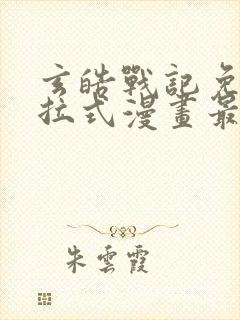 玄皓戰記免
拉式漫畫最
朱雲霞